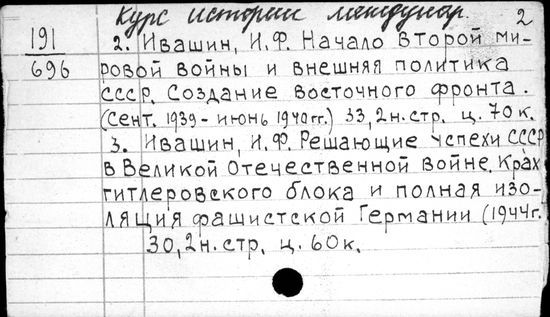 Курс истории междунар. 2
191
696
2. Ивашин, И.Ф. Начало второй ми-
ровой войны и внешняя политика
СССР. Создание восточного фронта.
(Сент. 1939 - июнь 1940 гг.) 33,2н.стр. ц. 70к.
3. Ивашин, И.Ф. Решающие успехи СССР
в Великой Отечественной войне. Крах
гитлеровского блока и полная изо-
ляция фашистской Германии (1944г.
30,2н.стр. ц. 60к.